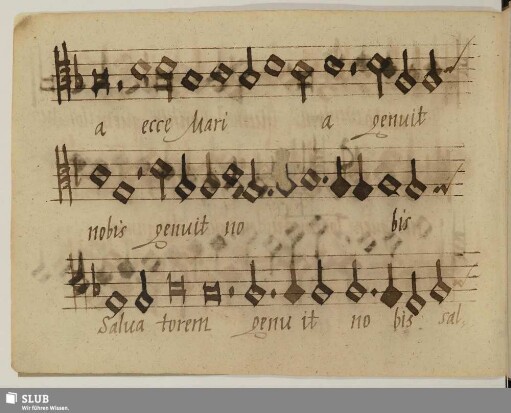 a ecce Mari a genuit
nobis genuit no bis
Salua torem genu it no bis sal
SLUB
Wir führen Wissen.